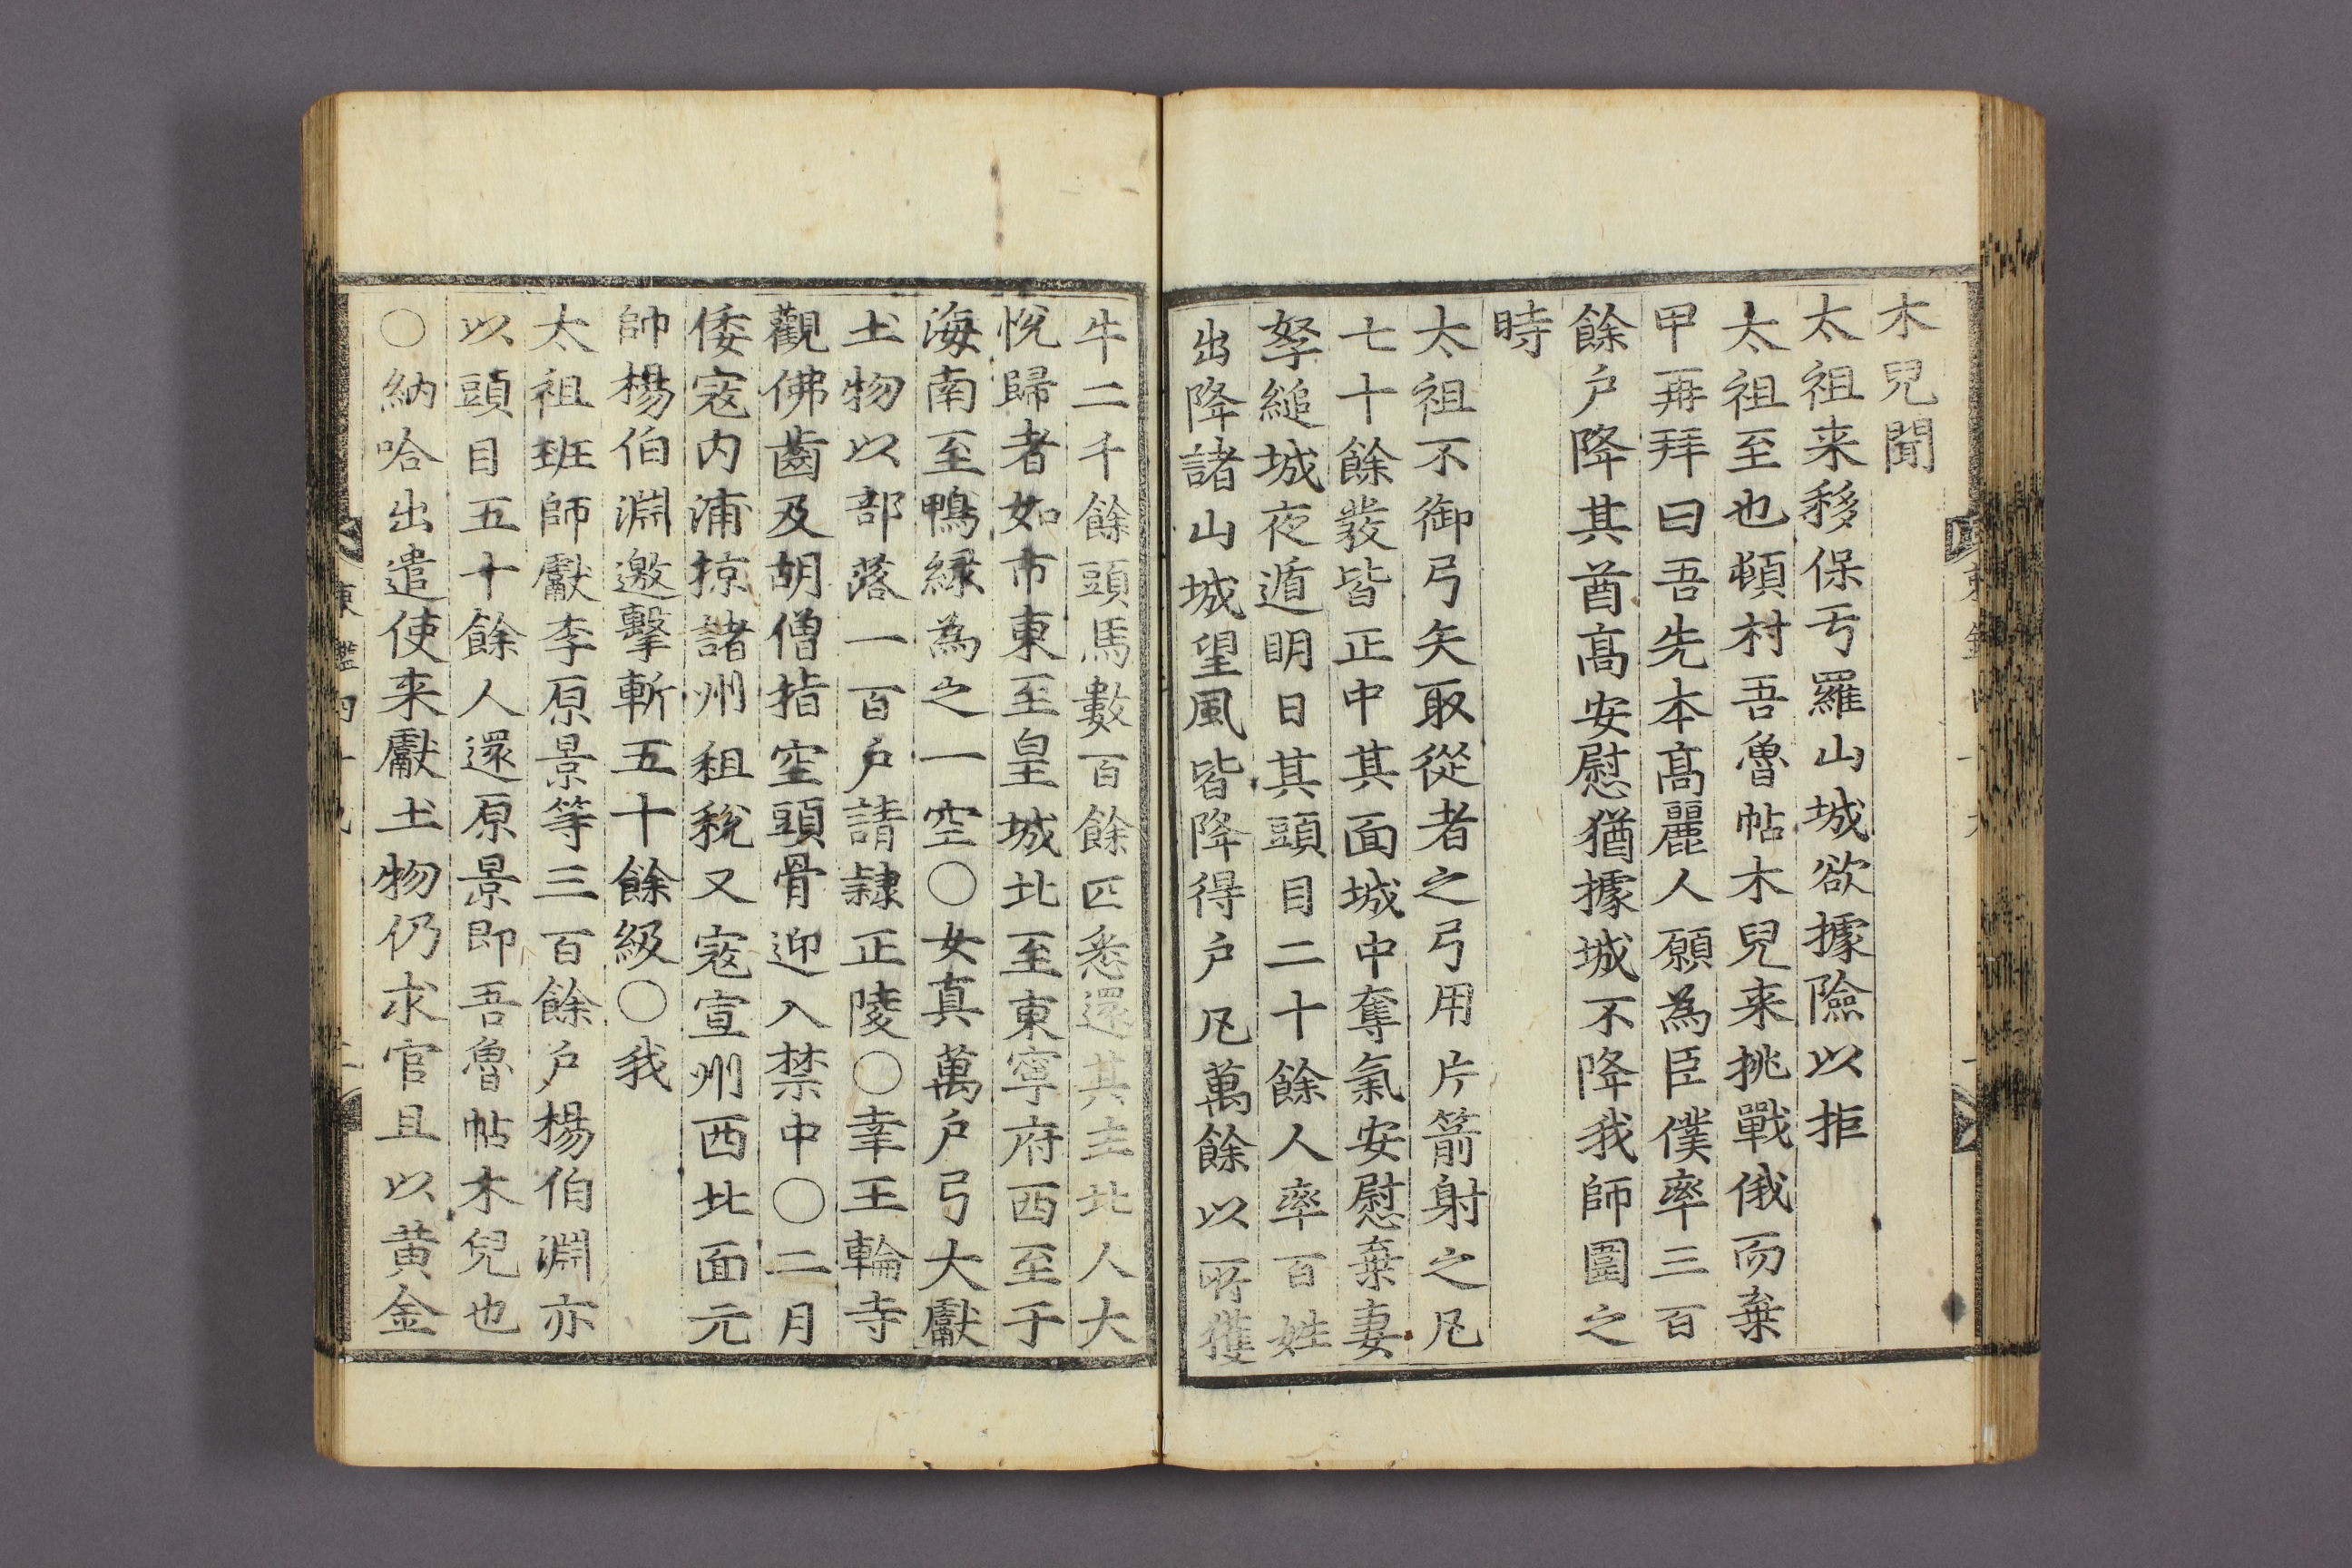 木兒聞
太祖来移保亐羅山城欲據險以拒
太祖至也頓村吾魯帖木兒来挑戰俄而棄
甲再拜曰吾先本髙麗人願為臣僕率三百
餘户降其酋髙安慰猶據城不降我師圍之
時
太祖不御弓矢取從者之弓用片箭射之凡
七十餘發皆正中其面城中奪氣安慰棄妻
孥縋城夜遁明日其頭目二十餘人率百姓
出降諸山城望風皆降得户凡萬餘以所獲
牛二千餘頭馬數百餘匹悉還其主北人大
悅歸者如市東至皇城北至東寧府西至于
海南至鴨緑為之一空○女真萬户弓大獻
土物以部落一百户請隷正陵○幸王輪寺
觀佛齒及胡僧指空頭骨迎入禁中○二月
倭宼内浦掠諸州租稅又宼宣州西北面元
帥楊伯淵邀擊斬五十餘級○我
太祖班師獻李原景等三百餘户楊伯淵亦
以頭目五十餘人還原景即吾魯帖木兒也
○納哈出遣使来獻土物仍求官且以黄金